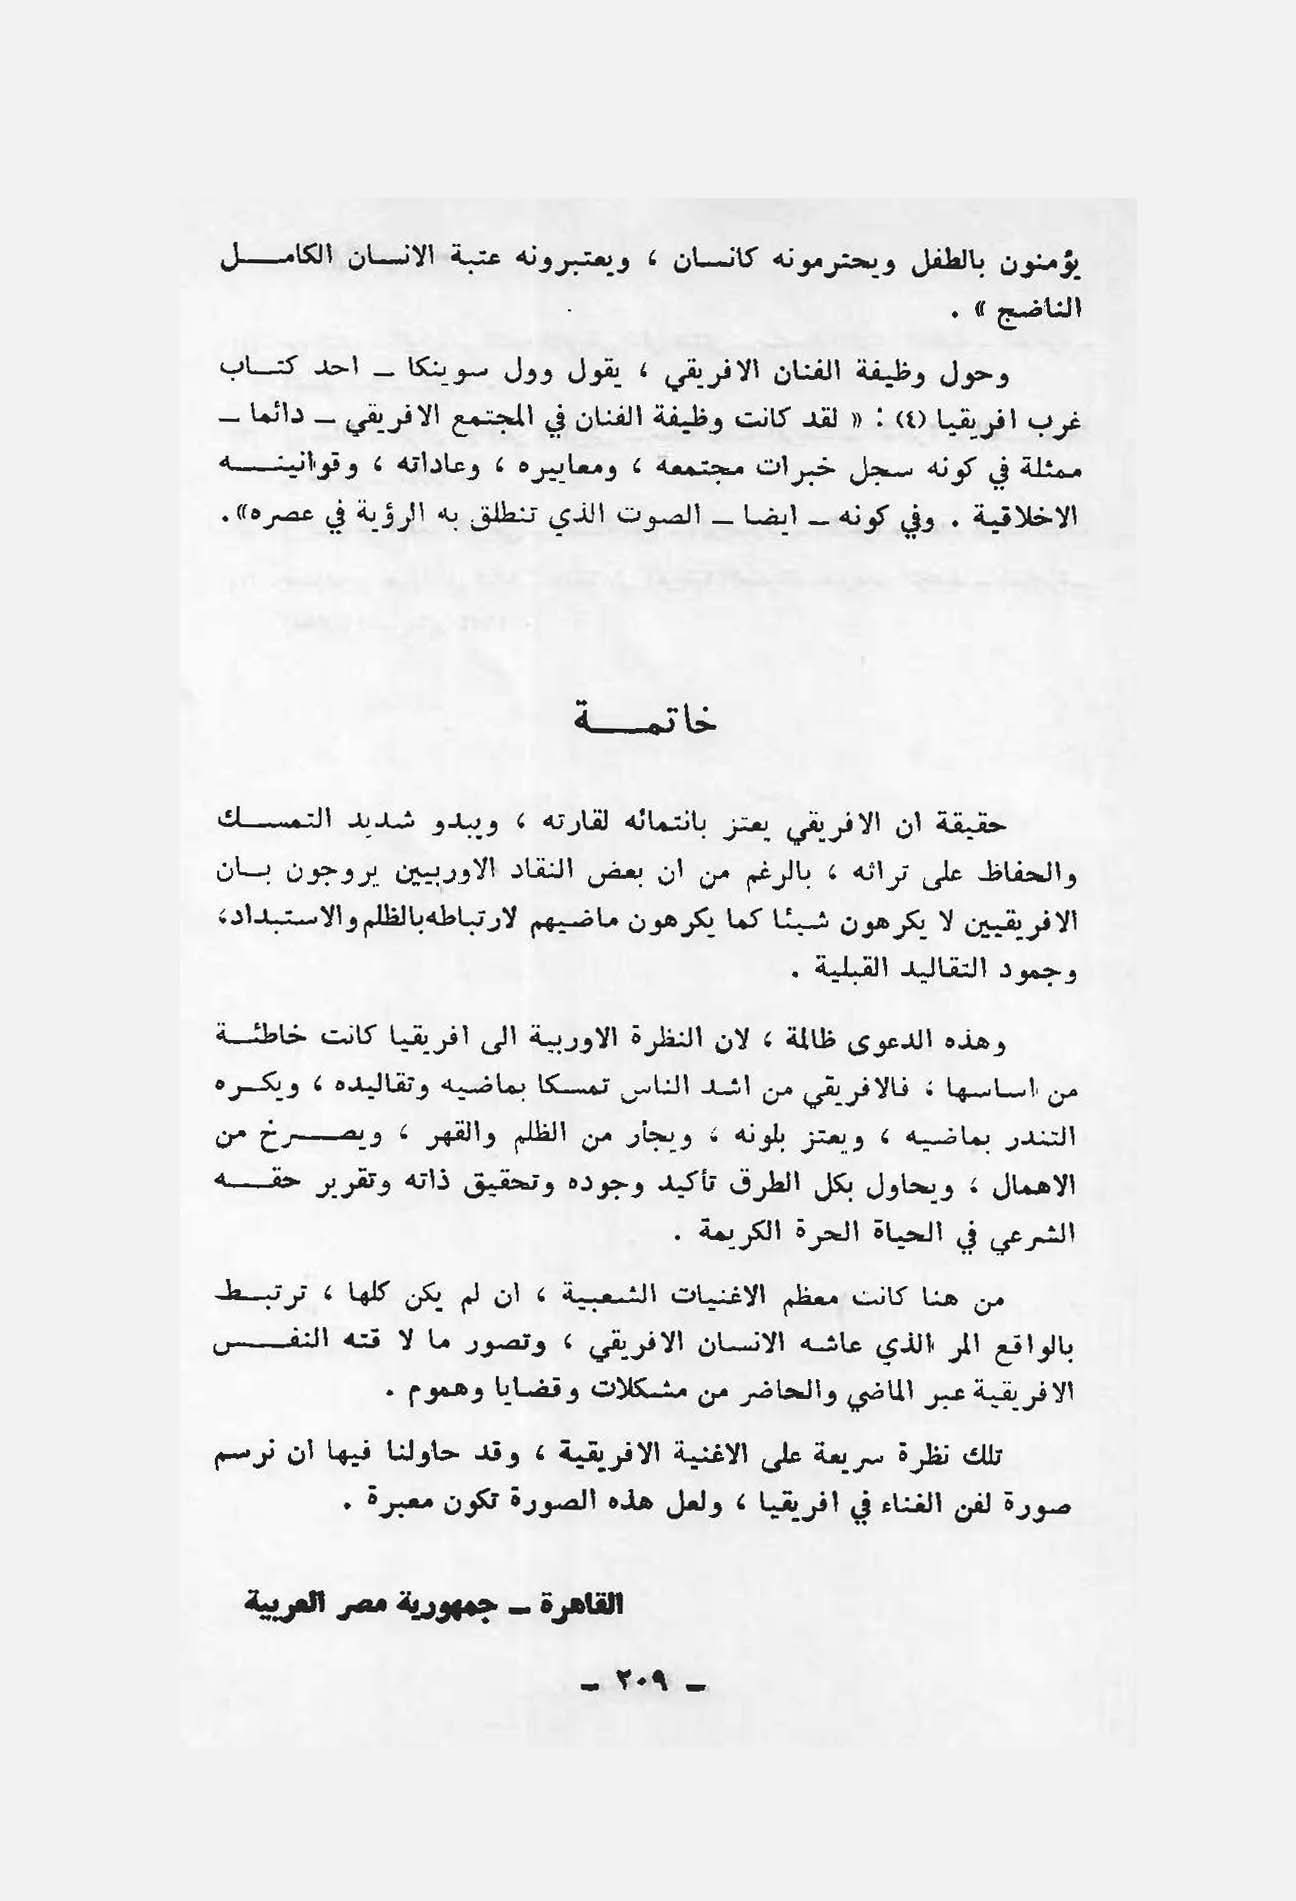 يؤمنون بالطفل ويحترمونه كانسان ، ويعتبرونه عتبة الانسان الكامل
الناضج » .
وحول وظيفة الفنان الافريقي ، يقول وول سوينكا ـ احد كتاب
غرب افريقيا (٤) : « لقد كانت وظيفة الفنان في المجتمع الافريقي ـ دائما ـ
ممثلة في كونه سجل خبرات مجتمعه ، ومعاييره ، وعاداته ، وقوانينه
الاخلاقية . وفي كونه ـ ايضا ـ الصوت الذي تنطلق به الرؤية في عصره» .
خاتمة
حقيقة ان الافريقي يعتز بانتمائه لقارته ، ويبدو شديد التمسك
والحفاظ على تراثه ، بالرغم من ان بعض النقاد الاوربيين يروجون بان
الافريقيين لا يكرهون شيئا كما يكرهون ماضيهم لارتباطه بالظلم والاستبداد ،
وجمود التقاليد القبلية .
وهذه الدعوى ظالمة ، لان النظرة الاوربية الى افريقيا كانت خاطئة
من اساسها ، فالافريقي من اشد الناس تمسكا بماضيه وتقاليده ، ويكره
التندر بماضيه ، ويعتز بلونه ، ويجأر من الظلم والقهر ، ويصرخ من
الاهمال ، ويحاول بكل الطرق تأكيد وجوده وتحقيق ذاته وتقرير حقه
الشرعي في الحياة الحرة الكريمة .
من هنا كانت معظم الاغنيات الشعبية ، ان لم يكن كلها ، ترتبط
بالواقع المر الذي عاشه الانسان الافريقي ، وتصور ما لا قته النفس
الافريقية عبر الماضي والحاضر من مشكلات وقضايا وهموم .
تلك نظرة سريعة على الاغنية الافريقية ، وقد حاولنا فيها ان نرسم
صورة لفن الغناء في افريقيا ، ولعل هذه الصورة تكون معبرة .
القاهرة ـ جمهورية مصر العربية
ـ ٢٠٩ ـ